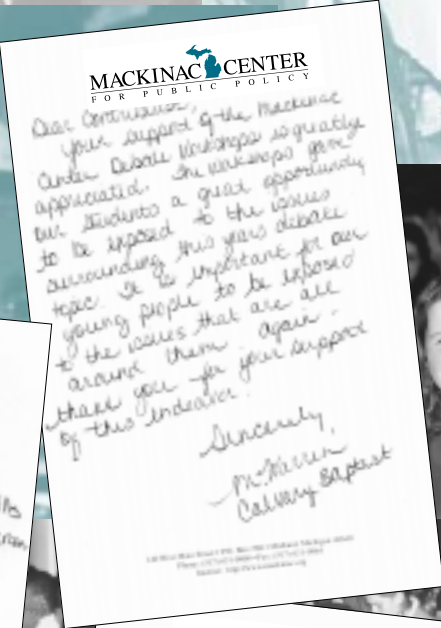 MACKINAC CENTER
FOR PUBLIC POLICY
Dear Contributor,
your support of the Mackinac
Center Debate Workshops is greatly
appreciated. The workshops gave
our students a great opportunity
to be exposed to the issues
surrounding this years debate
topic. It is important for our
young people to be exposed
to the issues that are all
around them. Again -
thank you for your support
of this endeavor.
Sincerely,
M. Warren
Calvary Baptist